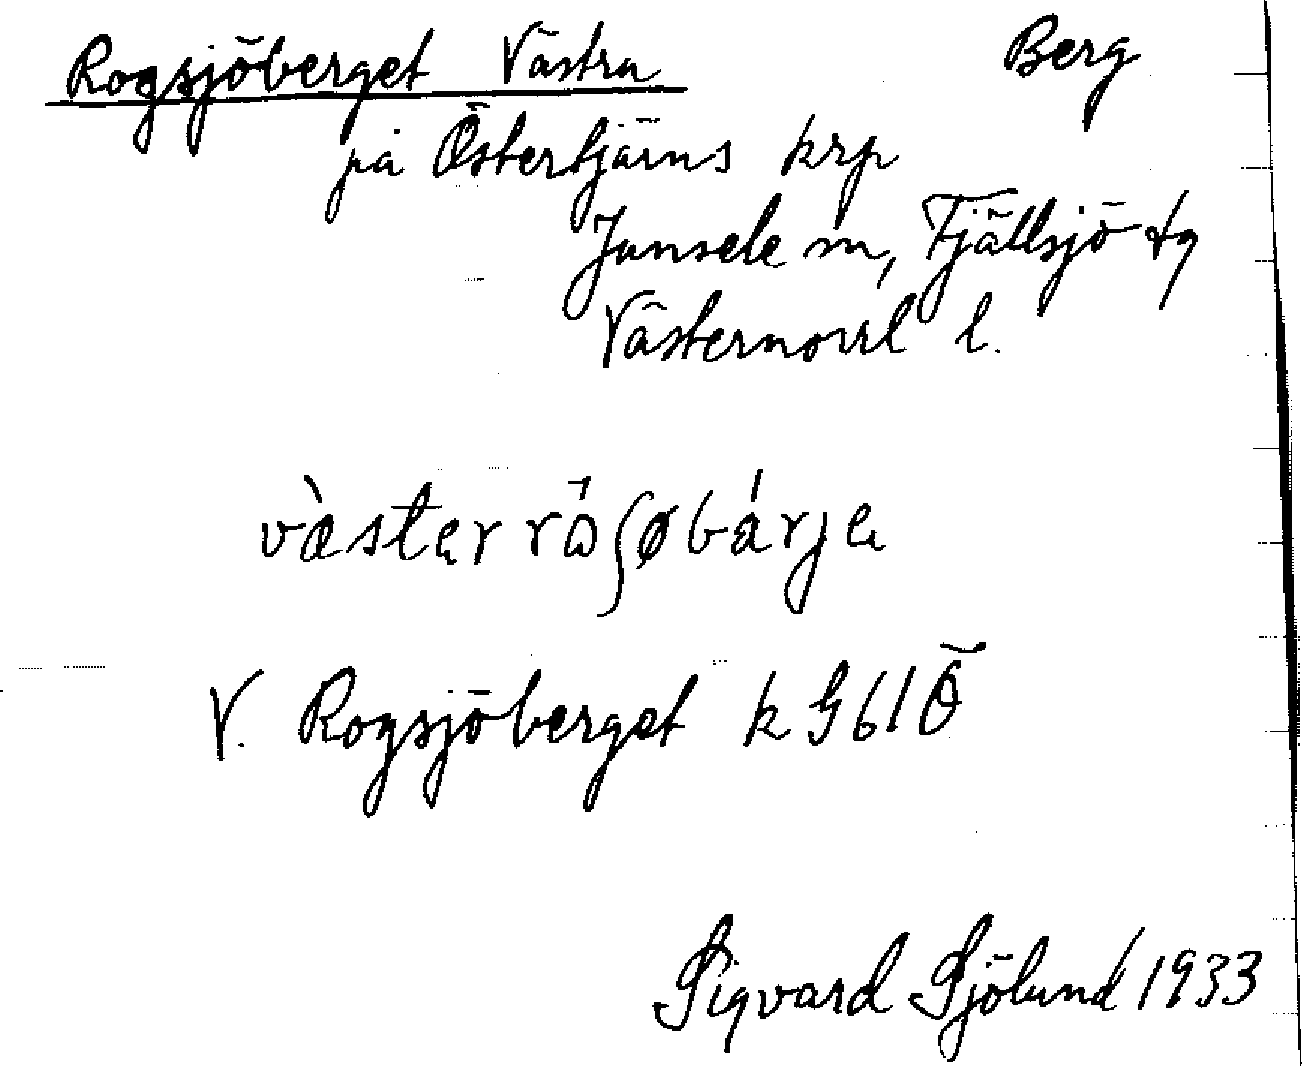 Rogsjöberget Västra Berg
på Östertjärns krp
Junsele sn, Fjällsjö tg
Västernorrl l.
V. Rogsjöberget k G61Ö
Sigvard Sjölund 1933